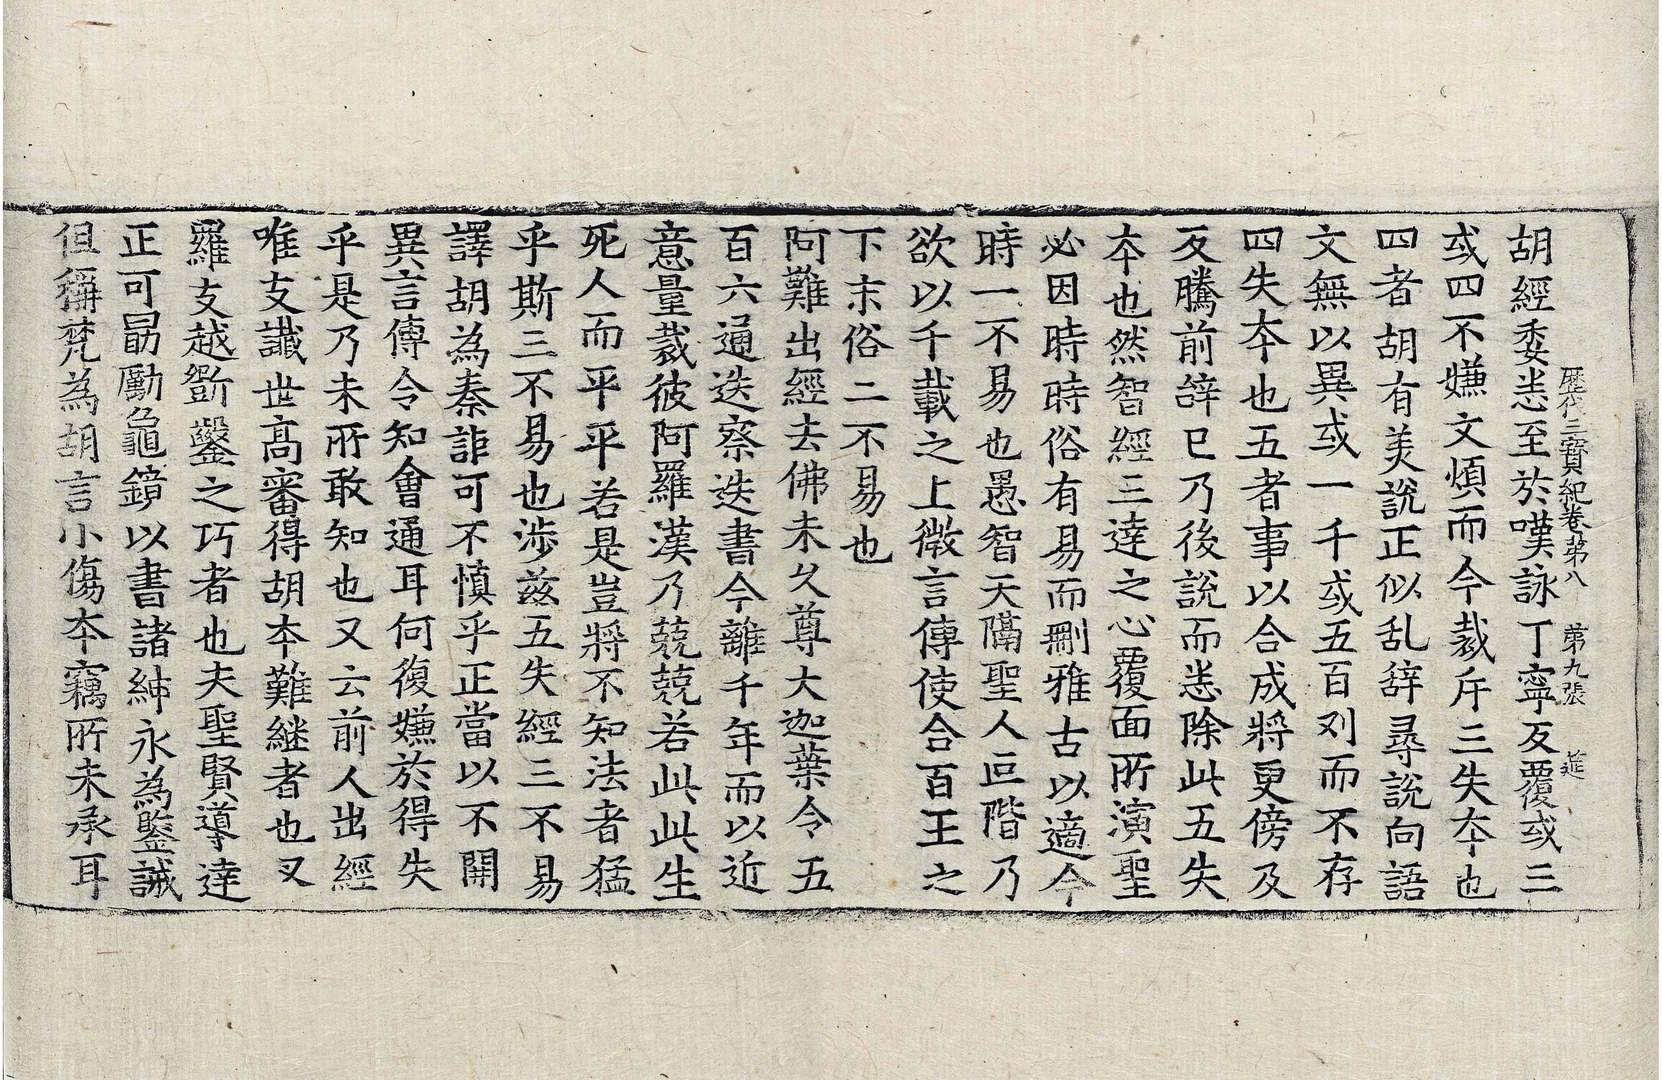 歷代三寶紀卷第八　第九張　莚
胡經委悉至於嘆詠丁寧反覆或三
或四不嫌文煩而今裁斥三失夲也
四者胡有美說正似乱辞尋說向語
文無以異或一千或五百刈而不存
四失夲也五者事以合成將更傍及
反騰前辞已乃後說而悉除此五失
夲也然智經三達之心覆面所演聖
必因時時俗有易而刪雅古以適今
時一不易也愚智天隔聖人叵階乃
欲以千載之上微言傳使合百王之
下末俗二不易也
阿難出經去佛未久尊大迦葉令五
百六通迭察迭書今離千年而以近
意量裁彼阿羅漢乃兢兢若此此生
死人而平平若是豈將不知法者猛
乎斯三不易也涉茲五失經三不易
譯胡為秦詎可不慎乎正當以不開
異言傳令知會通耳何復嫌於得失
乎是乃未所敢知也又云前人出經
唯支讖世高審得胡夲難継者也叉
羅支越斵鑿之巧者也夫聖賢導達
正可勗勵龜鏡以書諸紳永為鑒誡
但稱梵為胡言小傷夲竊所未承耳